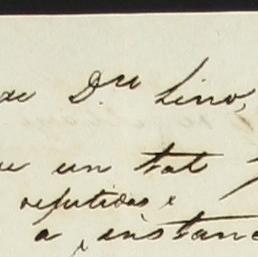 de D.ⁿ Lino,
que un tal
repetidas
a instanc